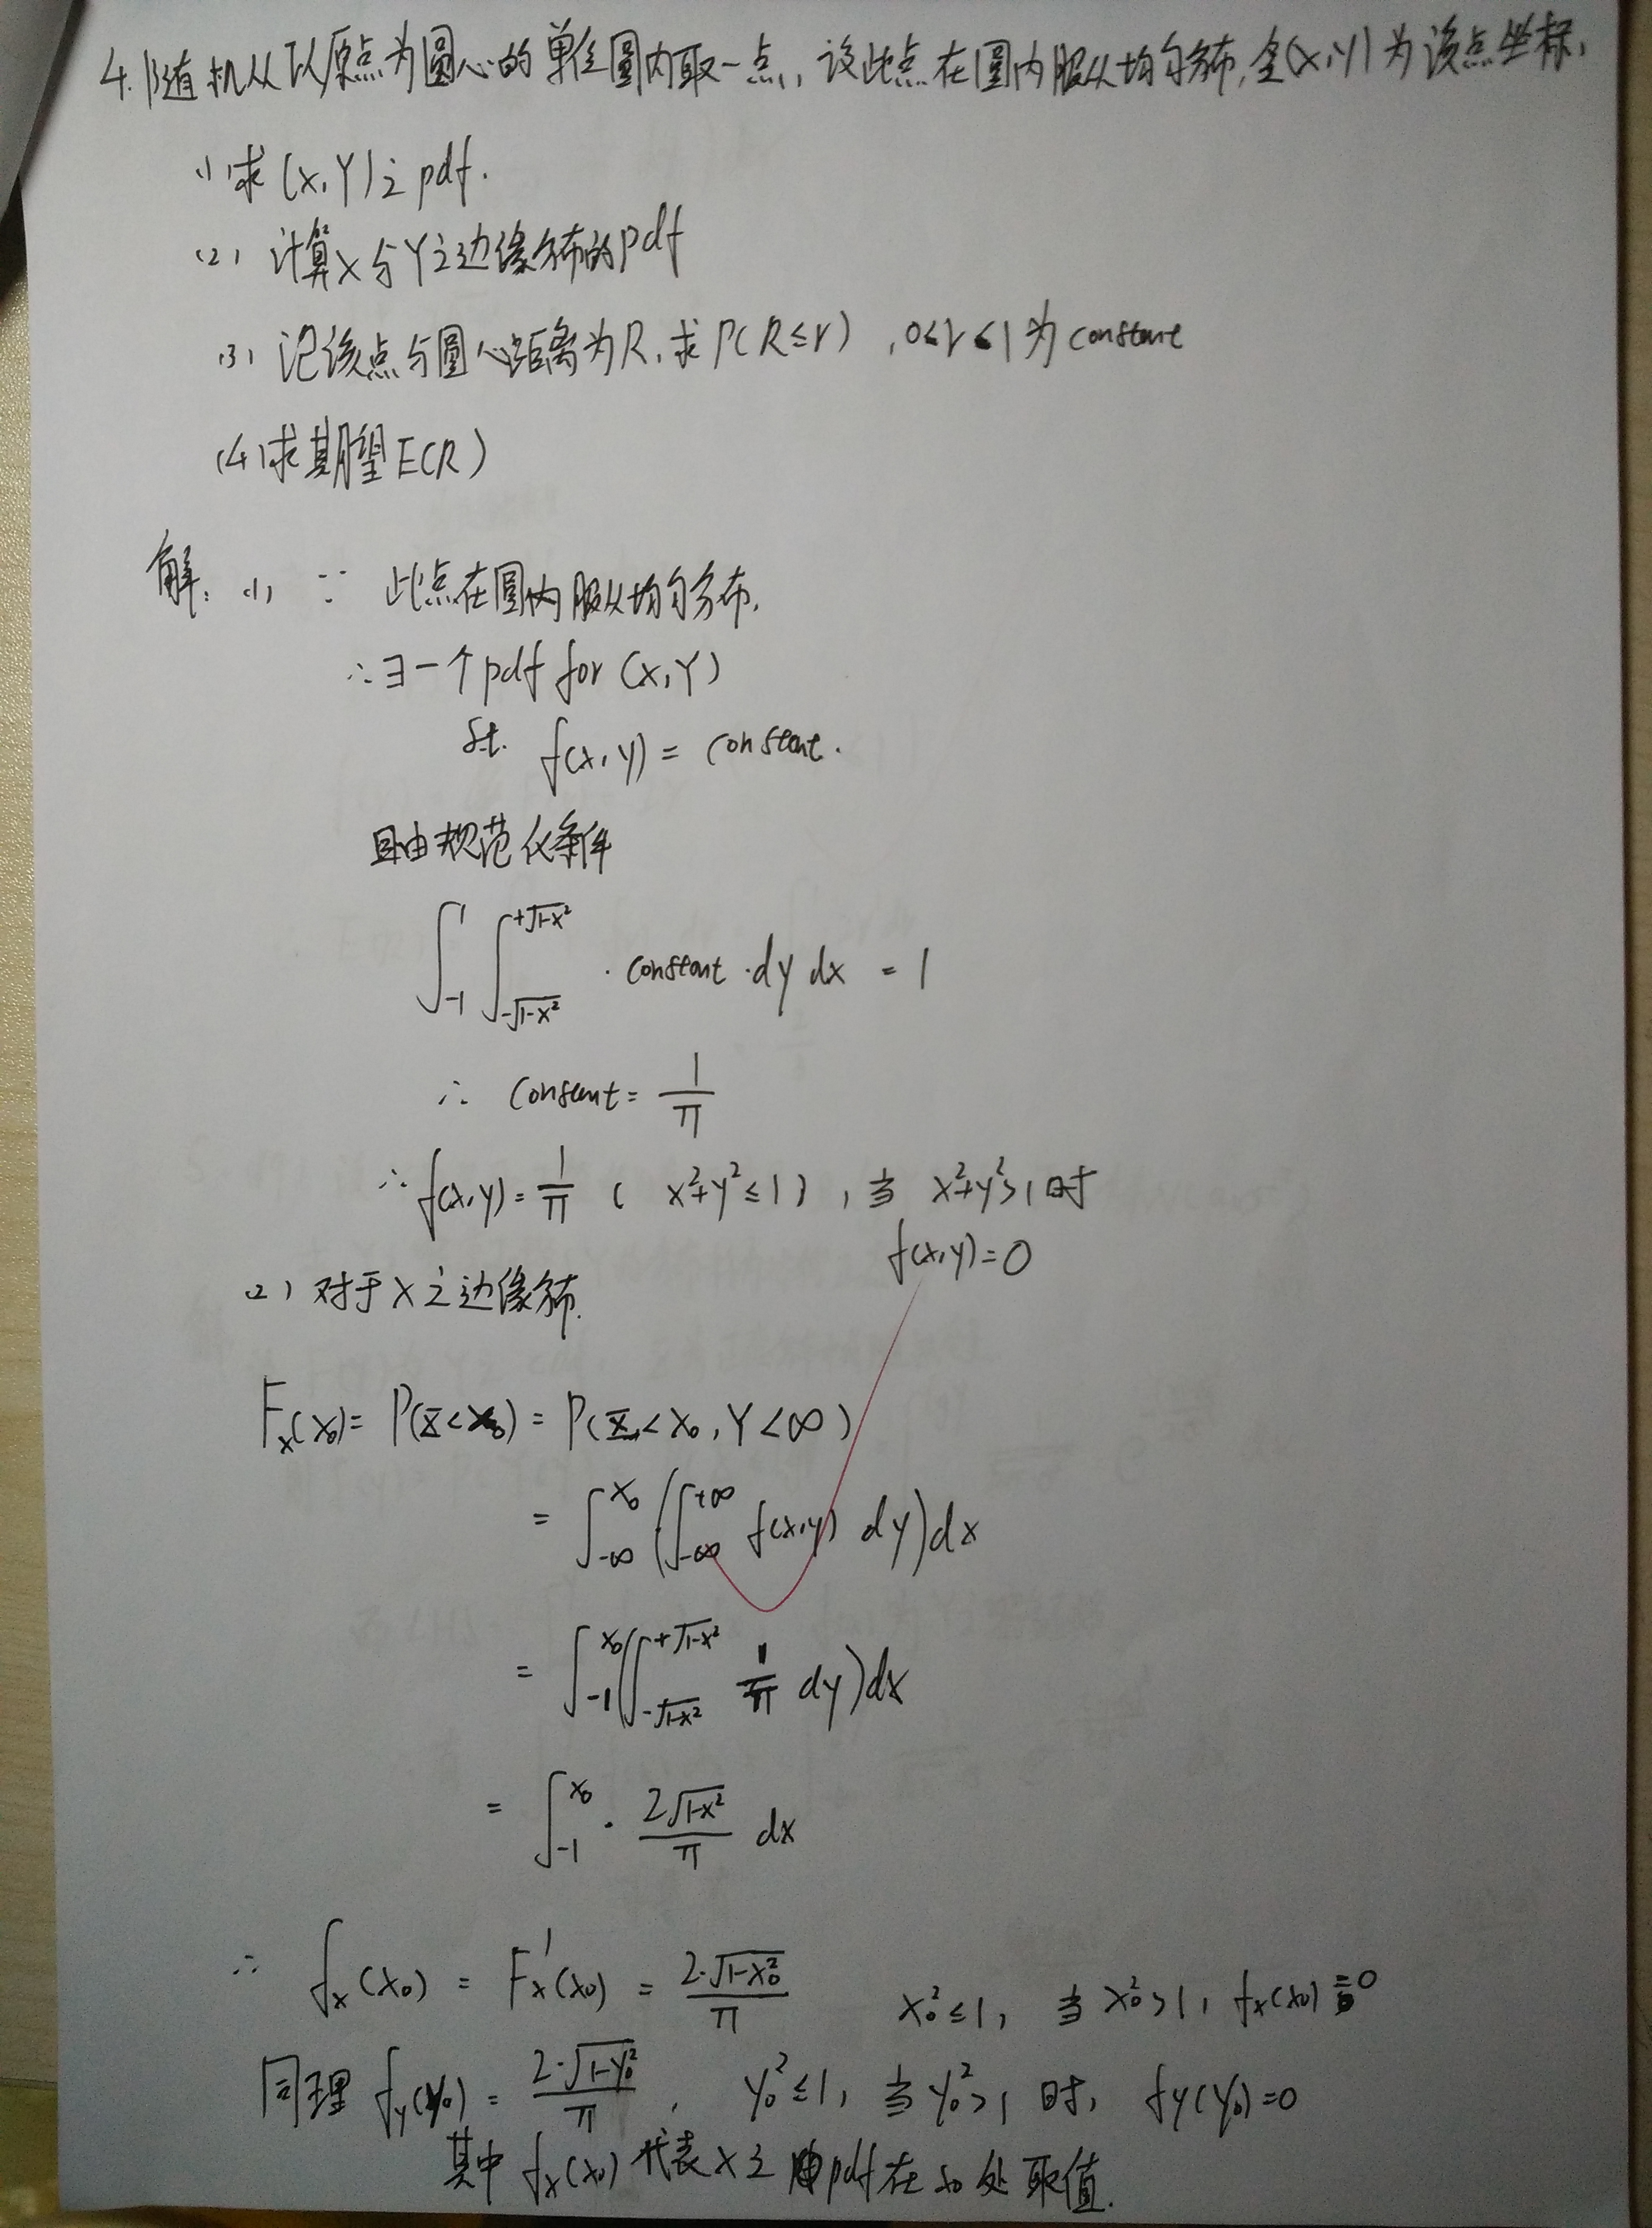 4. 随机从以原点为圆心的单位圆内取一点, 设此点在圆内服从均匀分布, 令(X,Y)为该点坐标,
(1) 求(X,Y)之pdf.
(2) 计算X与Y之边缘分布的pdf
(3) 记该点与圆心距离为R, 求P(R≤r), 0<r<1为constant
(4) 求期望E(R)
解: (1) ∵ 此点在圆内服从均匀分布,
∴∃一个pdf for (X,Y)
s.t. f(x,y) = constant.
且由规范化条件
∫_{-1}^{1} ∫_{-√(1-x²)}^{+√(1-x²)} · constant · dy dx = 1
∴ constant = 1/π
∴ f(x,y) = 1/π ( x²+y²≤1 ), 当 x²+y²>1时
f(x,y)=0
(2) 对于X之边缘分布.
F_X(x₀) = P(X<x₀) = P(X<x₀, Y<∞)
= ∫_{-∞}^{x₀} (∫_{-∞}^{+∞} f(x,y) dy)dx
= ∫_{-1}^{x₀} (∫_{-√(1-x²)}^{+√(1-x²)} 1/π dy)dx
= ∫_{-1}^{x₀} · 2√(1-x²)/π dx
∴ f_X(x₀) = F'_X(x₀) = 2·√(1-x₀²)/π x₀²≤1, 当x₀²>1, f_X(x₀)=0
同理 f_Y(y₀) = 2·√(1-y₀²)/π, y₀²≤1, 当y₀²>1时, f_Y(y₀)=0
其中 f_X(x₀) 代表X之pdf在x₀处取值.